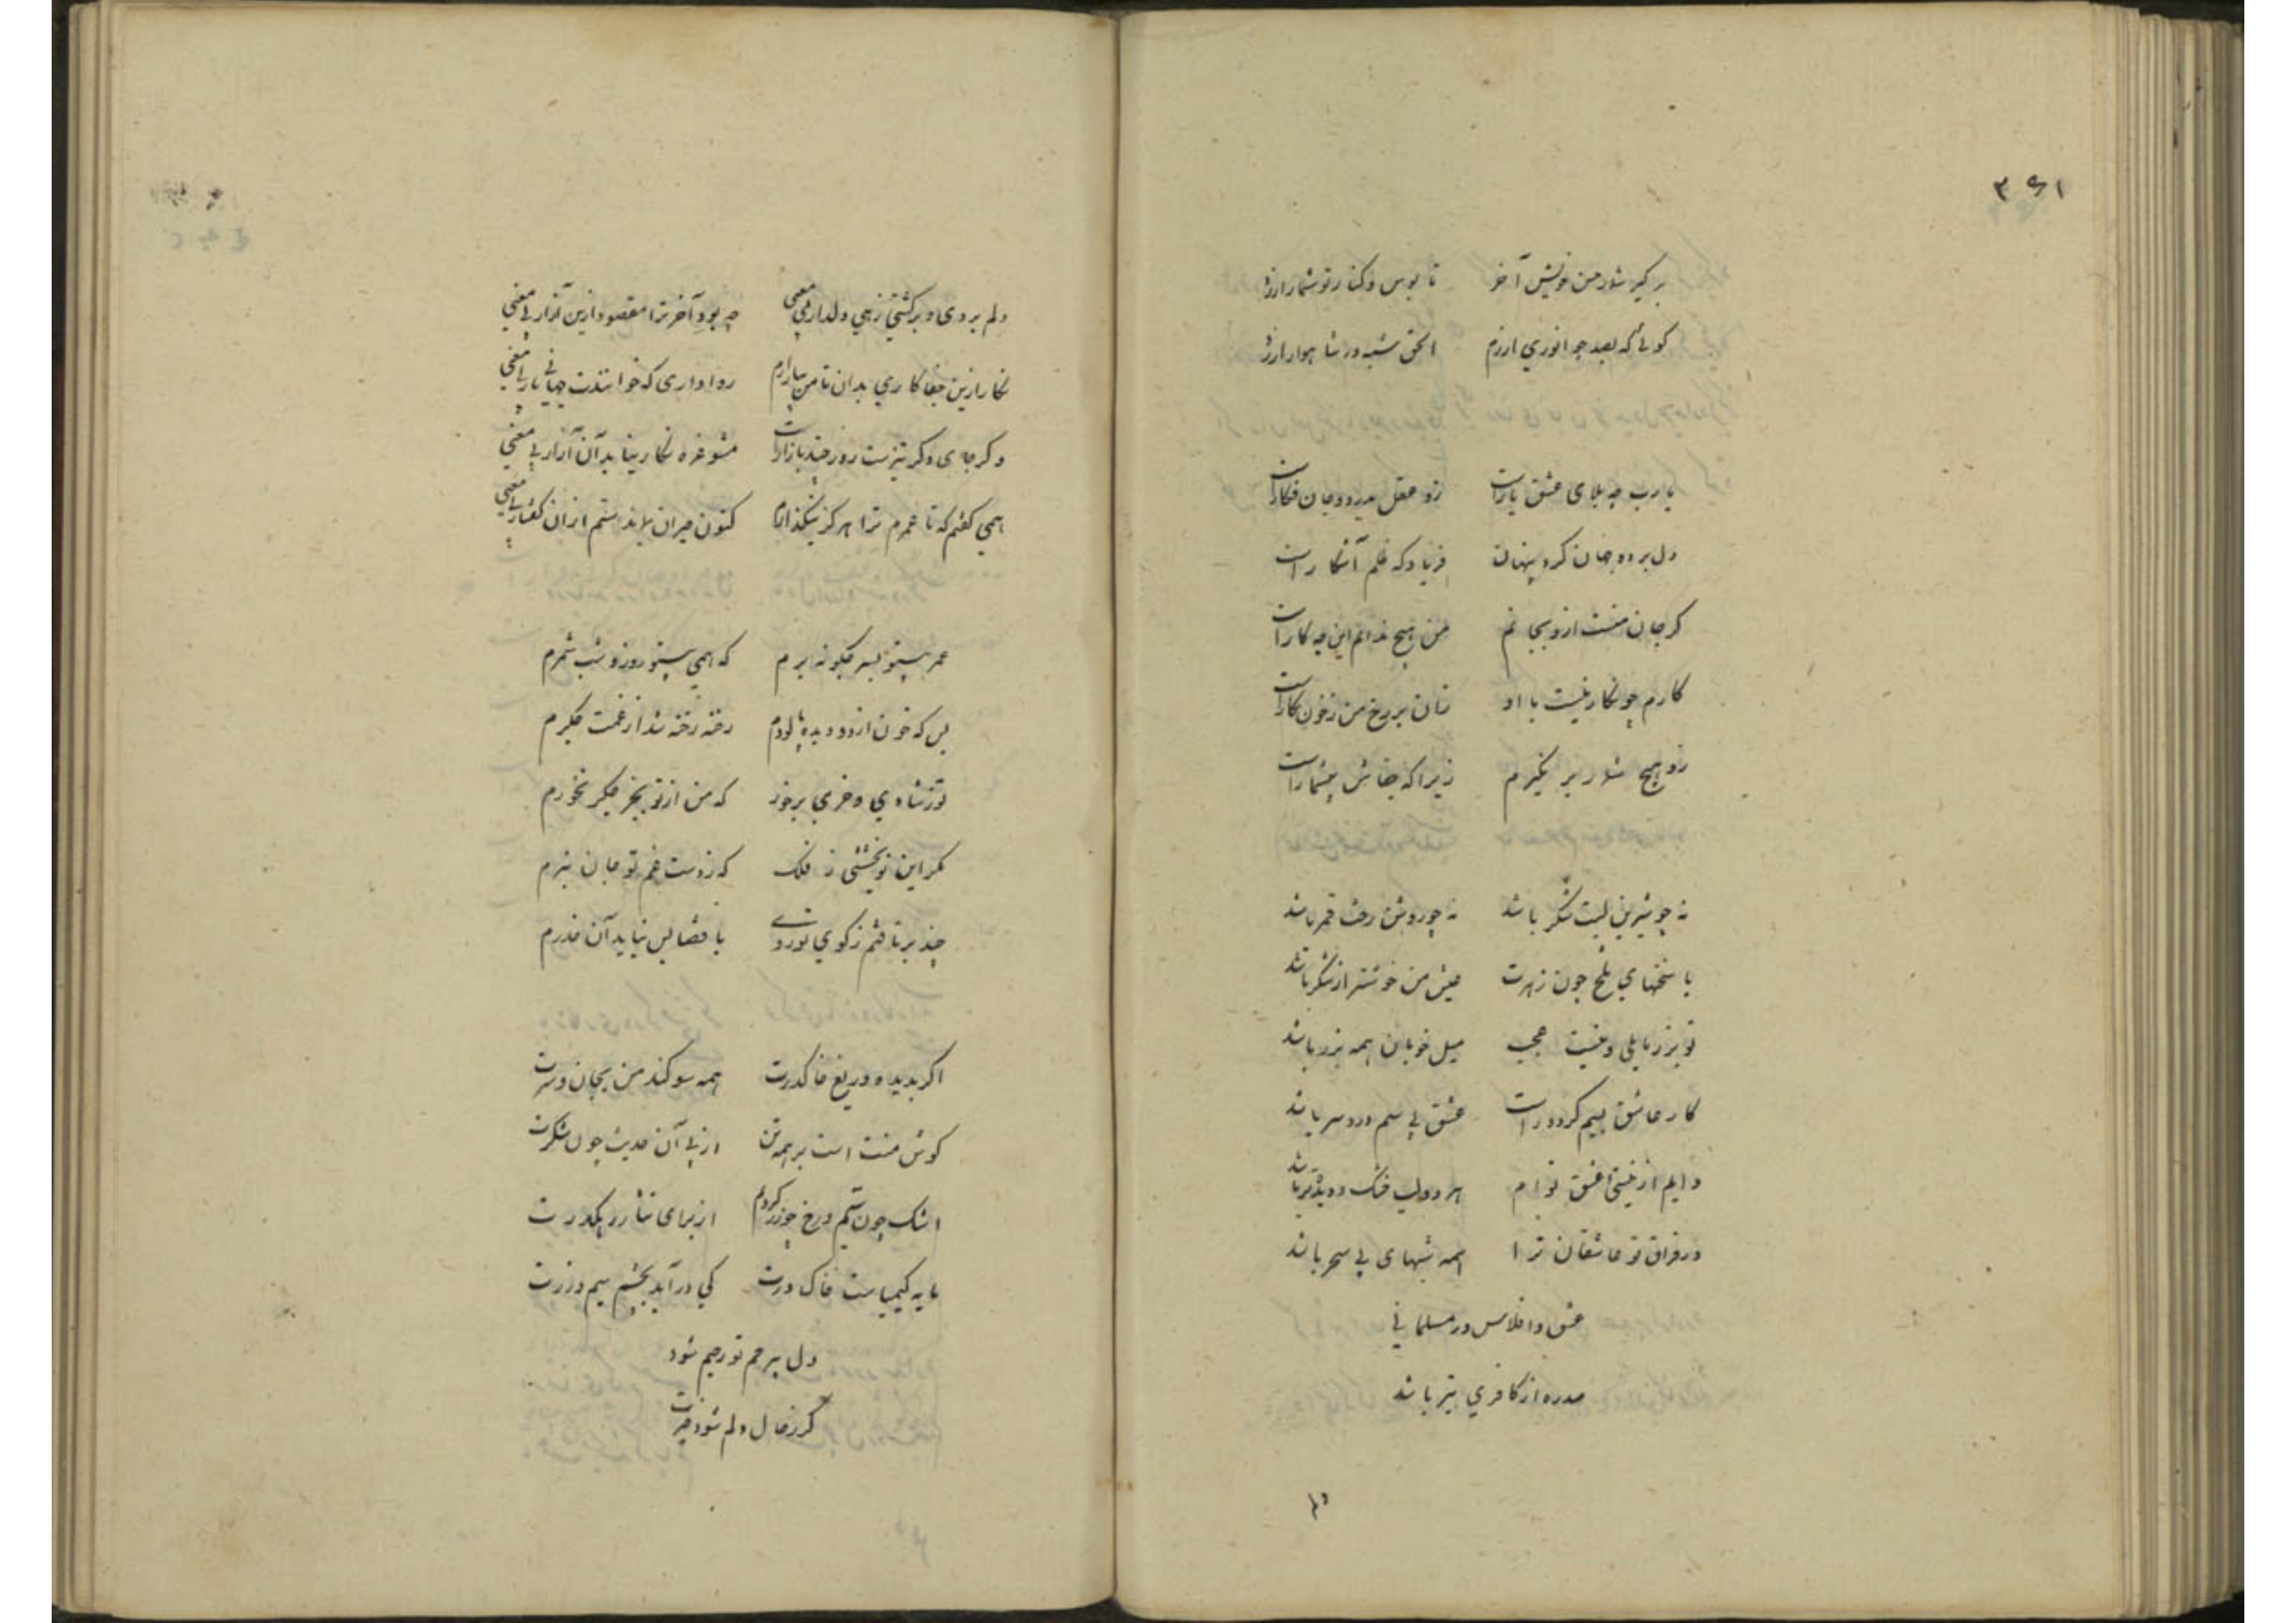 ۳۶۱
بر گیر شمار من خویش آخر تا بوس و کنار تو شمار ارزد
گوئی که بصد چو انوری ارزم الحق شبه در شاهوار ارزد
یارب چه بلای عشق یارست زو عقل بدرد و جان فکارست
دل برد و جان کرد پنهان فریاد که ظلم آشکارست
گر جان منست ازو بجانم من هیچ ندانم این چه کارست
کارم چو نگار نیست با او زان بر رخ من ز خون نگارست
زو هیچ شمار بر نگیرم زیرا که جفاش بیشمارست
نه چو شیرین لبت شکر باشد نه چو روشن رخت قمر باشد
با سخنهای تلخ چون زهرت عیش من خوشتر از شکر باشد
تو بزر مایلی و نیست عجب میل خوبان همه بزر باشد
کار عاشق بسیم گردد راست عشق بی سیم درد سر باشد
دایم از نیستی عشق توام هر دو لب خشک و دیده تر باشد
در فراق تو عاشقان ترا همه شبهای بی سحر باشد
عشق و افلاس در مسلمانی
صدره از کافری بتر باشد
دلم
دلم بردی و برگشتی زهی دلدار بی معنی چه بود آخر ترا مقصود ازین آزار بی معنی
نگارا زین جفاکاری بدان تا من بیازارم روا داری که خوانندت جهانی یار بی معنی
و گرچه ی و گر تیزست روز چند بازارت مشو غره نگارینا بدان آزار بی معنی
همی گفتم که تا عمرم ترا هرگز بنگذارم کنون حیران بماندستم ازان گفتار بی معنی
عمر بیتو بسر چگونه برم که همی بیتو روز و شب شمرم
بس که خون از دو دیده پالودم رخنه رخنه شد از غمت جگرم
تو ز شادی و خرمی برخور که من از تو بجز جگر نخورم
مگر این نوبخشئی ز فلک که ز دست غم تو جان نبرم
چند برتافتم ز کوی تو روی با قضا بس نیاید آن قدرم
اگر بدیده دریغ خاک درت همه سوگند من بجان و سرت
گوش منست است بر همه تن از پی آن حدیث چون شکرت
اشک چون سیم و رخ چو زر کردم از برای نثار رهگذرت
مایه کیمیاست خاک درت کی درآید بچشم سیم و زرت
دل بیرحم تو رحیم شود
گر ز حال دلم شود خبرت